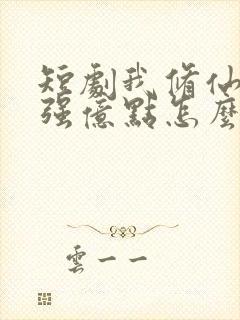 短劇我修仙
强億點怎麼
雲一一